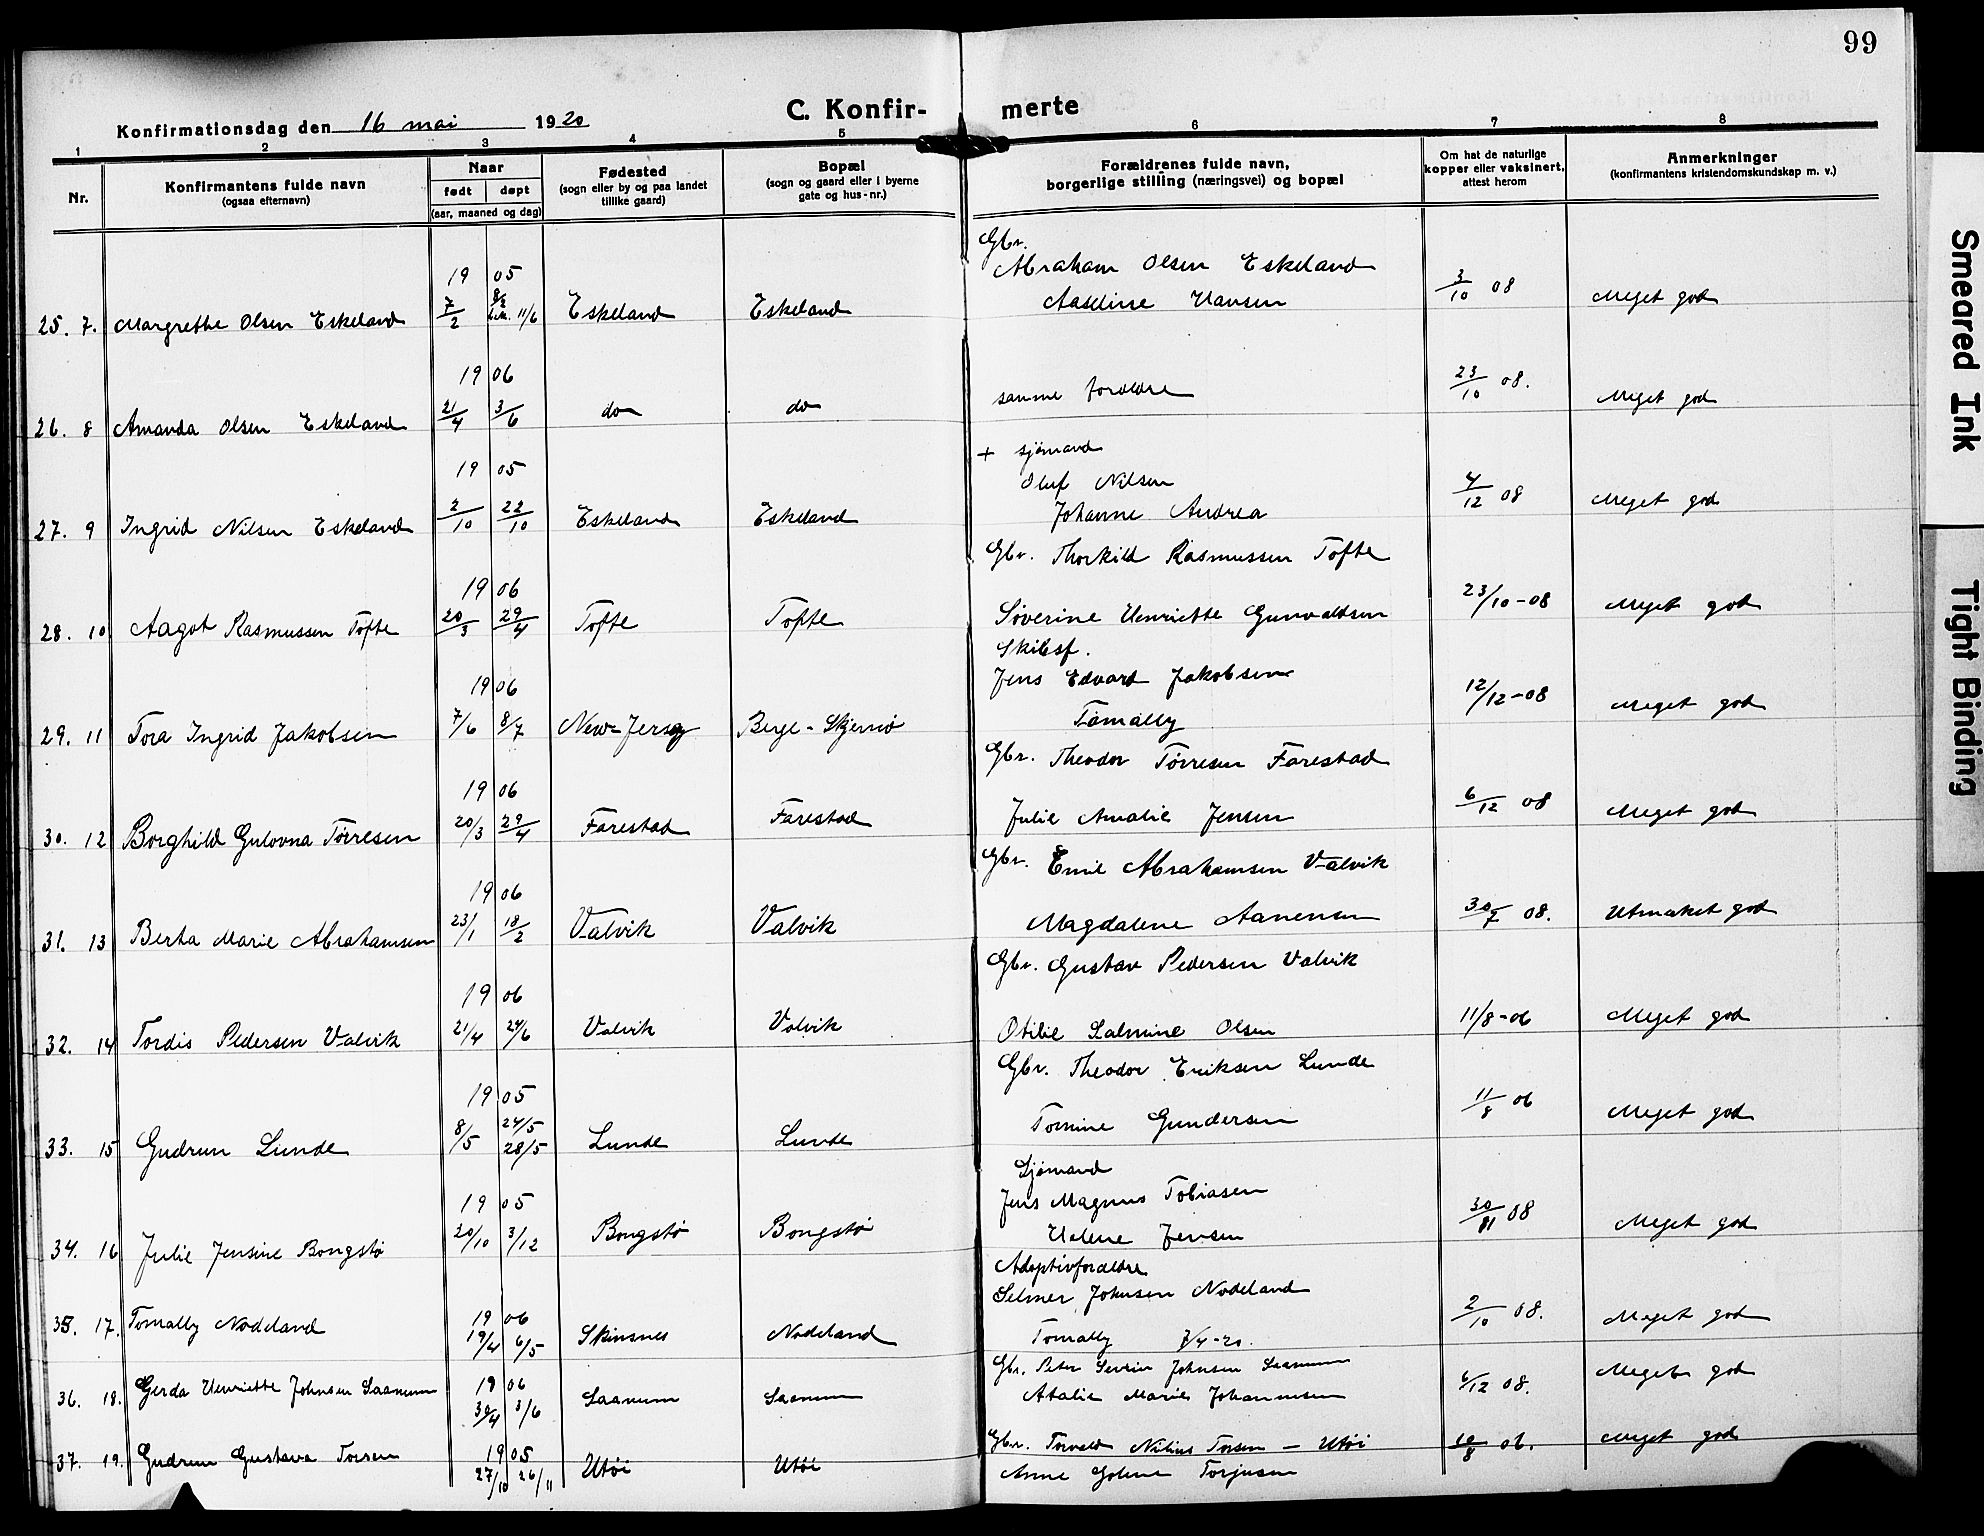 99
Konfirmationsdag den 16 mai 1920
C. Konfir- merte
1 2 3 4 5 6 7 8
Nr.
Konfirmantens fulde navn
(ogsaa efternavn)
Naar
født døpt
(aar, maaned og dag)
Fødested
(sogn eller by og paa landet
tillike gaard)
Bopæl
(sogn og gaard eller i byerne
gate og hus-nr.)
Forældrenes fulde navn,
borgerlige stilling (næringsvei) og bopæl
Om hat de naturlige
kopper eller vaksinert,
attest herom
Anmerkninger
(konfirmantens kristendomskundskap m. v.)
Gbr.
19 05 Abraham Olsen Eskeland
25. 7. Margrethe Olsen Eskeland 7/2 8/2 11/6 Eskeland Eskeland Aaseline Hansen 3/10 08 Meget god
19 06
26. 8 Amanda Olsen Eskeland 21/4 3/6 do do samme forældre 23/10 08. Meget god
+ sjømand
19 05 Oluf Nilsen
27. 9 Ingrid Nilsen Eskeland 2/10 22/10 Eskeland Eskeland Johanne Andrea 4/12 08 Meget god
Gbr. Thorkild Rasmussen Tofte
19 06
28. 10 Aagot Rasmussen Tofte 20/3 29/4 Tofte Tofte Søverine Henriette Gunvaldsen 23/10-08 Meget god
Skibsf.
19 06 Jens Edvard Jakobsen
29. 11 Tora Ingrid Jakobsen 7/6 8/7 New-Jersey Berge-Skjernø Tomally 12/12-08 Meget god
Gbr. Theodor Tørresen Farestad
19 06
30. 12 Borghild Gulovna Tørresen 20/3 29/4 Farestad Farestad Julie Amalie Jensen 6/12 08 Meget god
Gbr. Emil Abrahamsen Valvik
19 06
31. 13 Berta Marie Abrahamsen 23/1 18/2 Valvik Valvik Magdalene Aanensen 30/7 08. Utmæket god
Gbr. Gustav Pedersen Valvik
19 06
32. 14 Tordis Pedersen Valvik 21/4 24/6 Valvik Valvik Otilie Salmine Olsen 11/8-06 Meget god
Gbr. Theodor Eriksen Lunde
19 05
33. 15 Gudrun Lunde 8/5 24/5 28/5 Lunde Lunde Tomine Gundersen 11/8 06 Meget god
Sjømand
19 05 Jens Magnus Tobiasen
34. 16 Julie Jensine Bongstø 20/10 3/12 Bongstø Bongstø Helene Jensen 30/11 08 Meget god
Adoptivforældre
19 06 Selmer Johnsen Nodeland
35. 17. Tomally Nodeland 19/4 6/5 Skinsnes Nodeland Tomally 7/4-20. 2/10 08. Meget god
19 06 Gbr. Peter Severin Johnsen Saanum
36. 18. Gerda Henriette Johnsen Saanum 30/4 3/6 Saanum Saanum Atalie Marie Johannesen 6/12 08. Meget god
19 05 Gbr. Torvald Nilius Torsen - Utøi
37. 19. Gudrun Gustava Torsen 27/10 26/11 Utøi Utøi Anne Golene Torjusen 10/8 06. Meget god
Smeared Ink
Tight Binding